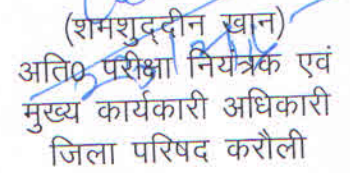 (शमशुद्दीन खान)
अति0 परीक्षा नियंत्रक एवं
मुख्य कार्यकारी अधिकारी
जिला परिषद करौली